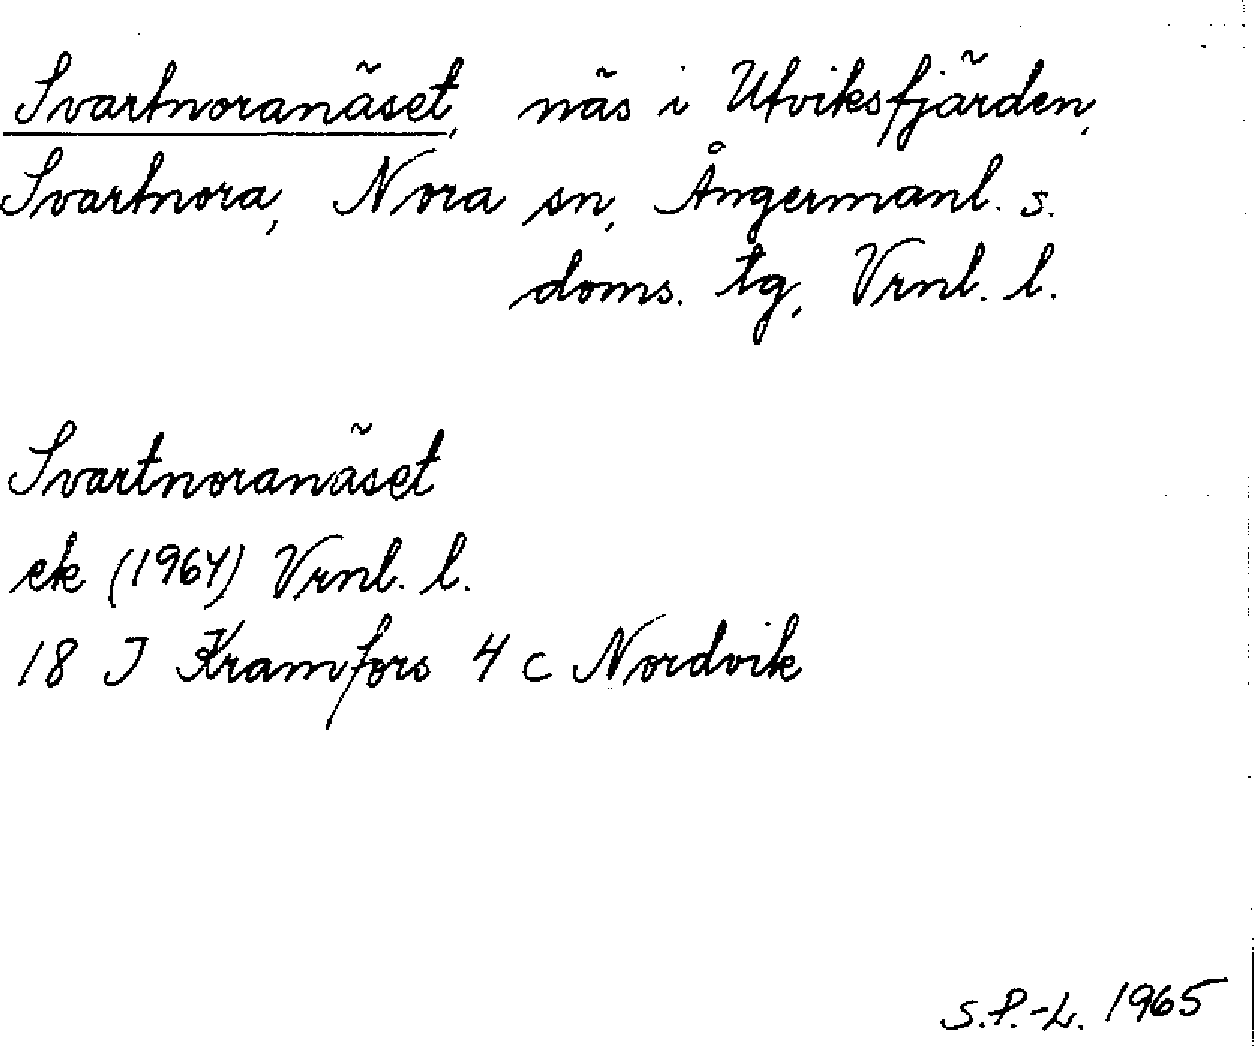 Svartnoranäset, näs i Utviksfjärden,
Svartnora, Nora sn, Ångermanl. s.
doms. tg, Vrnl. l.
Svartnoranäset
ek (1964) Vrnl. l.
18 J Kramfors 4 c Nordvik
S.P.-L. 1965